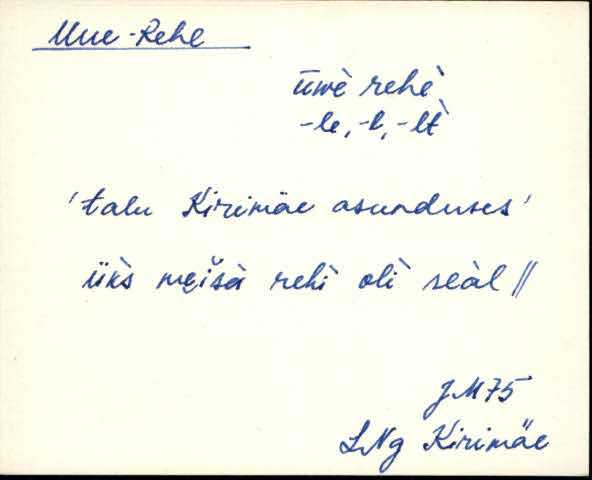 Uue-Rehe
ūwè rehè
-le, -l, -lt̀
'talu Kirimäe asunduses'
üks̀ meišà rehì olì seàl //
JM75
LNg Kirimäe